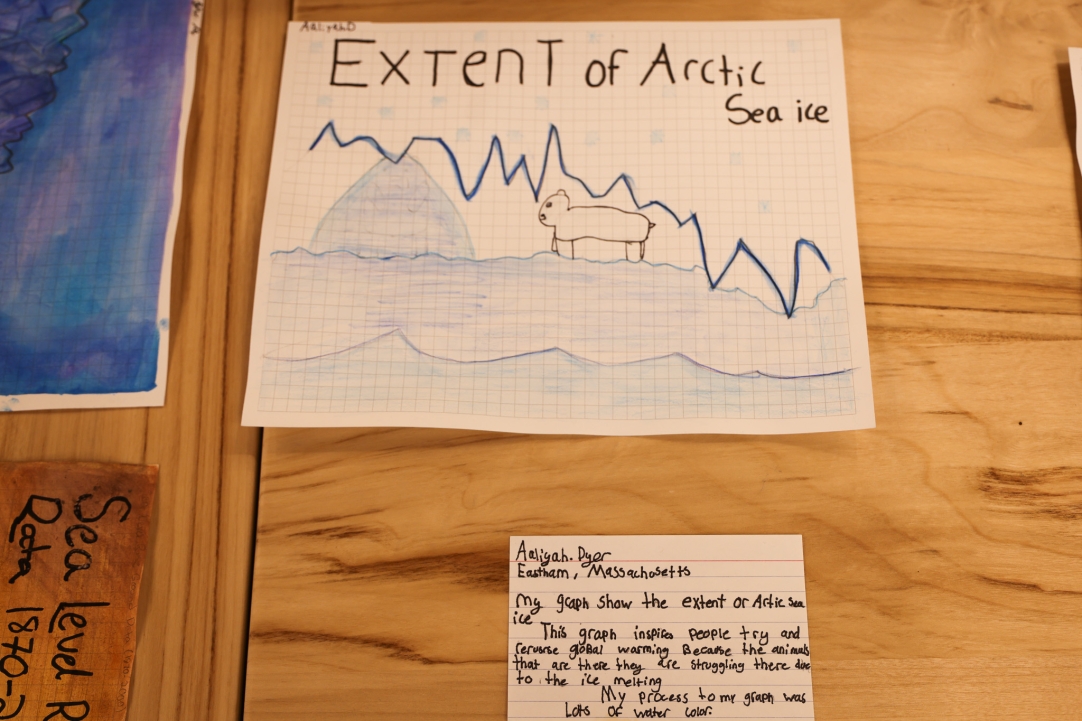 AaliyahD
ExTenT of Arctic
Sea ice
Sea Level R
Rata 1870-2
Aaliyah. Dyer
Eastham, Massachusetts
My graph show the extent or Artic Sea
ice
This graph inspires people try and
rerverse global warming Because the animals
that are there they are struggling there due
to the ice melting
My process to my graph was
Lots of water color.